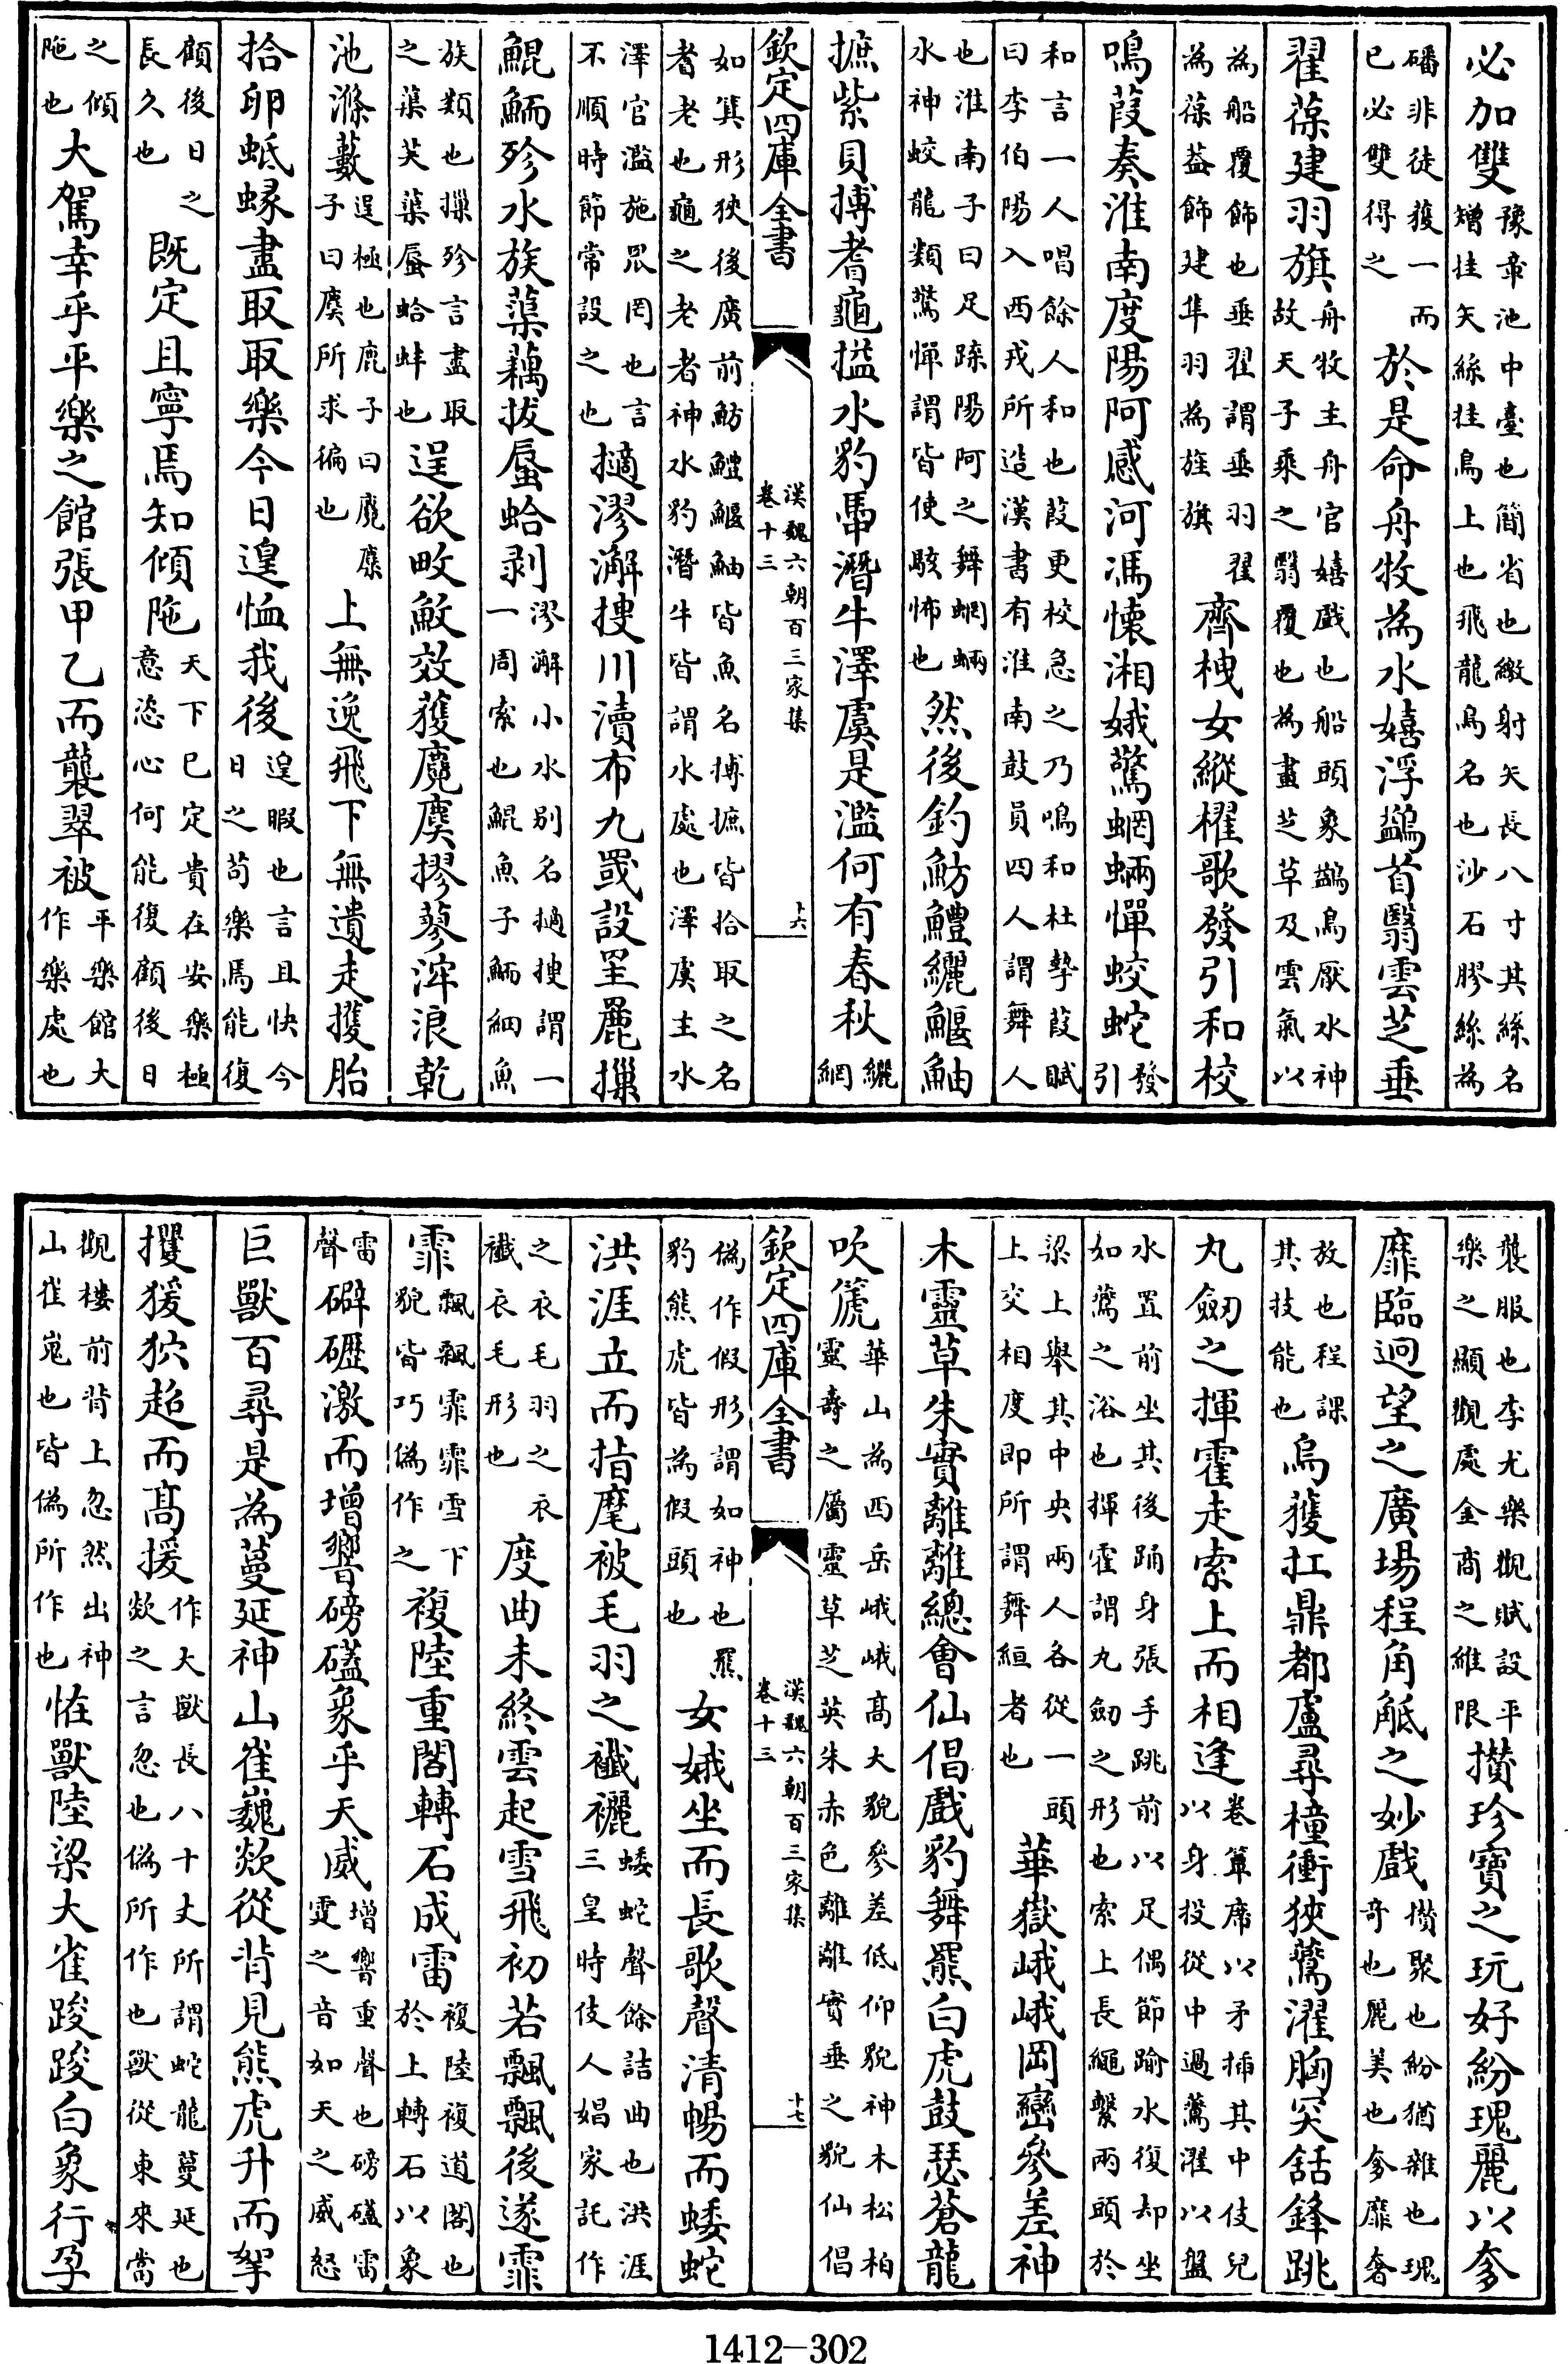 必加雙豫章池中臺也簡省也繳射矢長八寸其絲名矰挂矢絲挂鳥上也飛龍鳥名也沙石膠絲為
磻非徒獲一而已必雙得之於是命舟牧為水嬉浮鷁首翳雲芝垂
翟葆建羽旗舟牧主舟官嬉戲也船頭象鷁鳥厭水神故天子乘之翳覆也為畫芝草及雲氣以
為船覆飾也垂翟謂垂羽翟為葆葢飾建隼羽為旌旗齊栧女縱櫂歌發引和校
鳴葭奏淮南度陽阿感河馮懷湘娥驚蝄蜽憚蛟蛇發引
和言一人唱餘人和也葭更校急之乃鳴和杜摯葭賦曰李伯陽入西戎所造漢書有淮南鼓員四人謂舞人
也淮南子曰足蹀陽阿之舞蝄蜽水神蛟龍類驚憚謂皆使駭怖也然後釣魴鱧纚鰋鮋
摭紫貝搏耆龜搤水豹馽潛牛澤虞是濫何有春秋纚網
欽定四庫全書 漢魏六朝百三家集卷十三 十六
如箕形狹後廣前魴鱧鰋鮋皆魚名搏摭皆拾取之名耆老也龜之老者神水豹潛牛皆謂水處也澤虞主水
澤官濫施罛罔也言不順時節常設之也擿漻澥搜川瀆布九罭設罜䍡摷
鯤鮞殄水族蕖藕拔蜃蛤剥漻澥小水别名擿搜謂一一周索也鯤魚子鮞細魚
族類也摷殄言盡取之蕖芙蕖蜃蛤蚌也逞欲畋䱷效獲麑麌摎蓼浶浪乾
池滌藪逞極也鹿子曰麑麋子曰麌所求徧也上無逸飛下無遺走擭胎
拾卵蚳蝝盡取取樂今日遑恤我後遑暇也言且快今日之苟樂焉能復
顧後日之長久也既定且寧焉知傾陁天下已定貴在安樂極意恣心何能復顧後日
之傾陁也大駕幸乎平樂之館張甲乙而襲翠被平樂館大作樂處也
襲服也李尤樂觀賦設平樂之顯觀處金商之維限攢珍寶之玩好紛瑰麗以奓
靡臨迥望之廣場程角觝之妙戲攢聚也紛猶雜也瑰奇也麗美也奓靡奢
放也程課其技能也烏獲扛鼎都盧尋橦衝狹鷰濯胸突銛鋒跳
丸劒之揮霍走索上而相逢卷簟席以矛揷其中伎兒以身投從中過鷰濯以盤
水置前坐其後踊身張手跳前以足偶節踰水復却坐如鷰之浴也揮霍謂丸劒之形也索上長繩繫兩頭於
梁上舉其中央兩人各從一頭上交相度即所謂舞絙者也華嶽峨峨岡巒參差神
木靈草朱實離離總會仙倡戲豹舞羆白虎鼓瑟蒼龍
吹篪華山為西岳峨峨高大貌參差低仰貌神木松柏靈壽之屬靈草芝英朱赤色離離實垂之貌仙倡
欽定四庫全書 漢魏六朝百三家集卷十三 十七
偽作假形謂如神也羆豹熊虎皆為假頭也女娥坐而長歌聲清暢而蜲蛇
洪涯立而指麾被毛羽之襳襹蜲蛇聲餘詰曲也洪涯三皇時伎人娼家託作
之衣毛羽之衣襳衣毛形也度曲未終雲起雪飛初若飄飄後遂霏
霏飄飄霏霏雪下貌皆巧偽作之複陸重閣轉石成雷複陸複道閣也於上轉石以象
雷聲礔礰激而增響磅礚象乎天威增響重聲也磅礚雷霆之音如天之威怒
巨獸百尋是為蔓延神山崔巍欻從背見熊虎升而挐
攫猨狖超而髙援作大獸長八十丈所謂蛇龍蔓延也欻之言忽也偽所作也獸從東來當
觀樓前背上忽然出神山崔嵬也皆偽所作也恠獸陸梁大雀踆踆白象行孕
1412-302